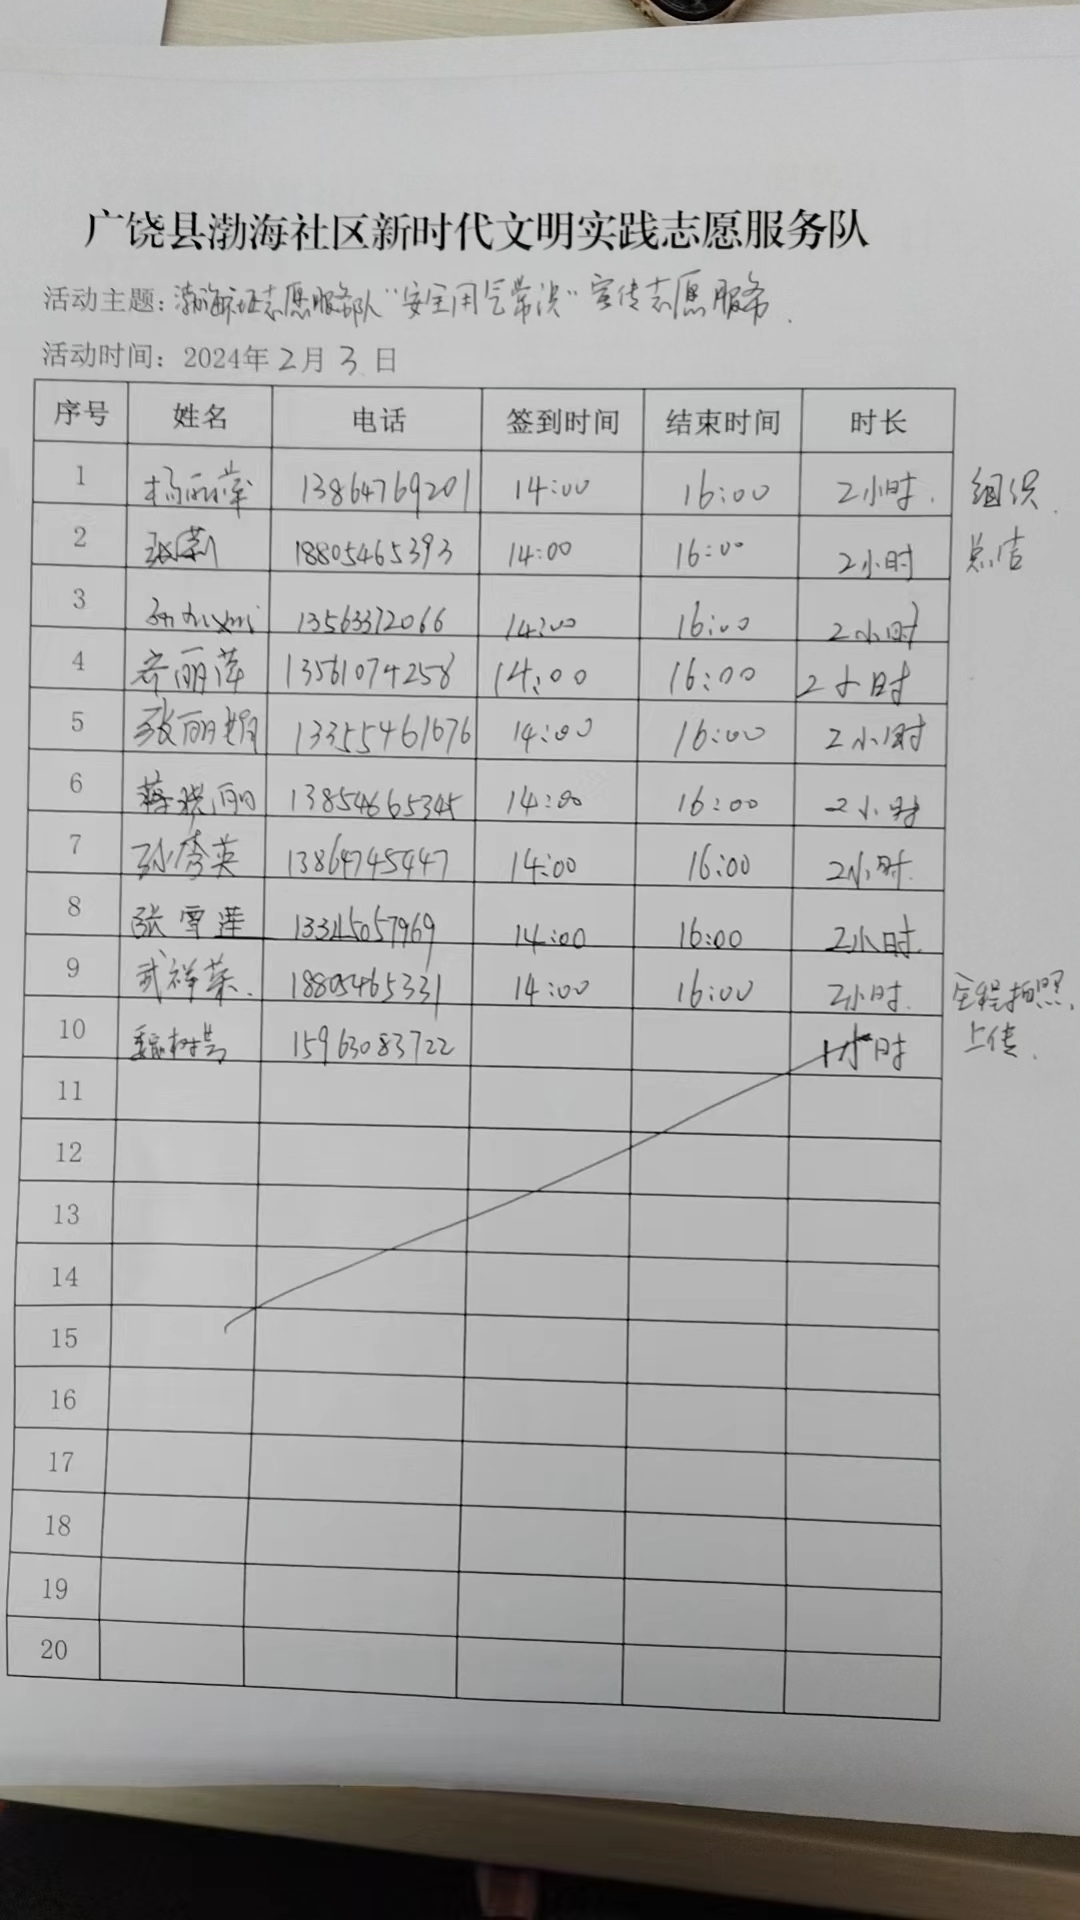 广饶县渤海社区新时代文明实践志愿服务队
活动主题:渤海社区志愿服务队"安全用气常识"宣传志愿服务.
活动时间: 2024年2月3日
序号 姓名 电话 签到时间 结束时间 时长
1 杨丽萍 13864769201 14:00 16:00 2小时. 组织.
2 18805465393 14:00 16:00 2小时 总结
3 13563372066 14:00 16:00 2小时
4 齐丽萍 13561074258 14:00 16:00 2小时
5 张丽娟 13355461676 14:00 16:00 2小时
6 蒋晓丽 13854665345 14:00 16:00 2小时
7 孙秀英 13864745447 14:00 16:00 2小时.
8 张雪莲 14:00 16:00 2小时.
9 武祥荣. 18805465331 14:00 16:00 2小时. 全程拍照,
上传.
10 15963083722 1小时
11
12
13
14
15
16
17
18
19
20